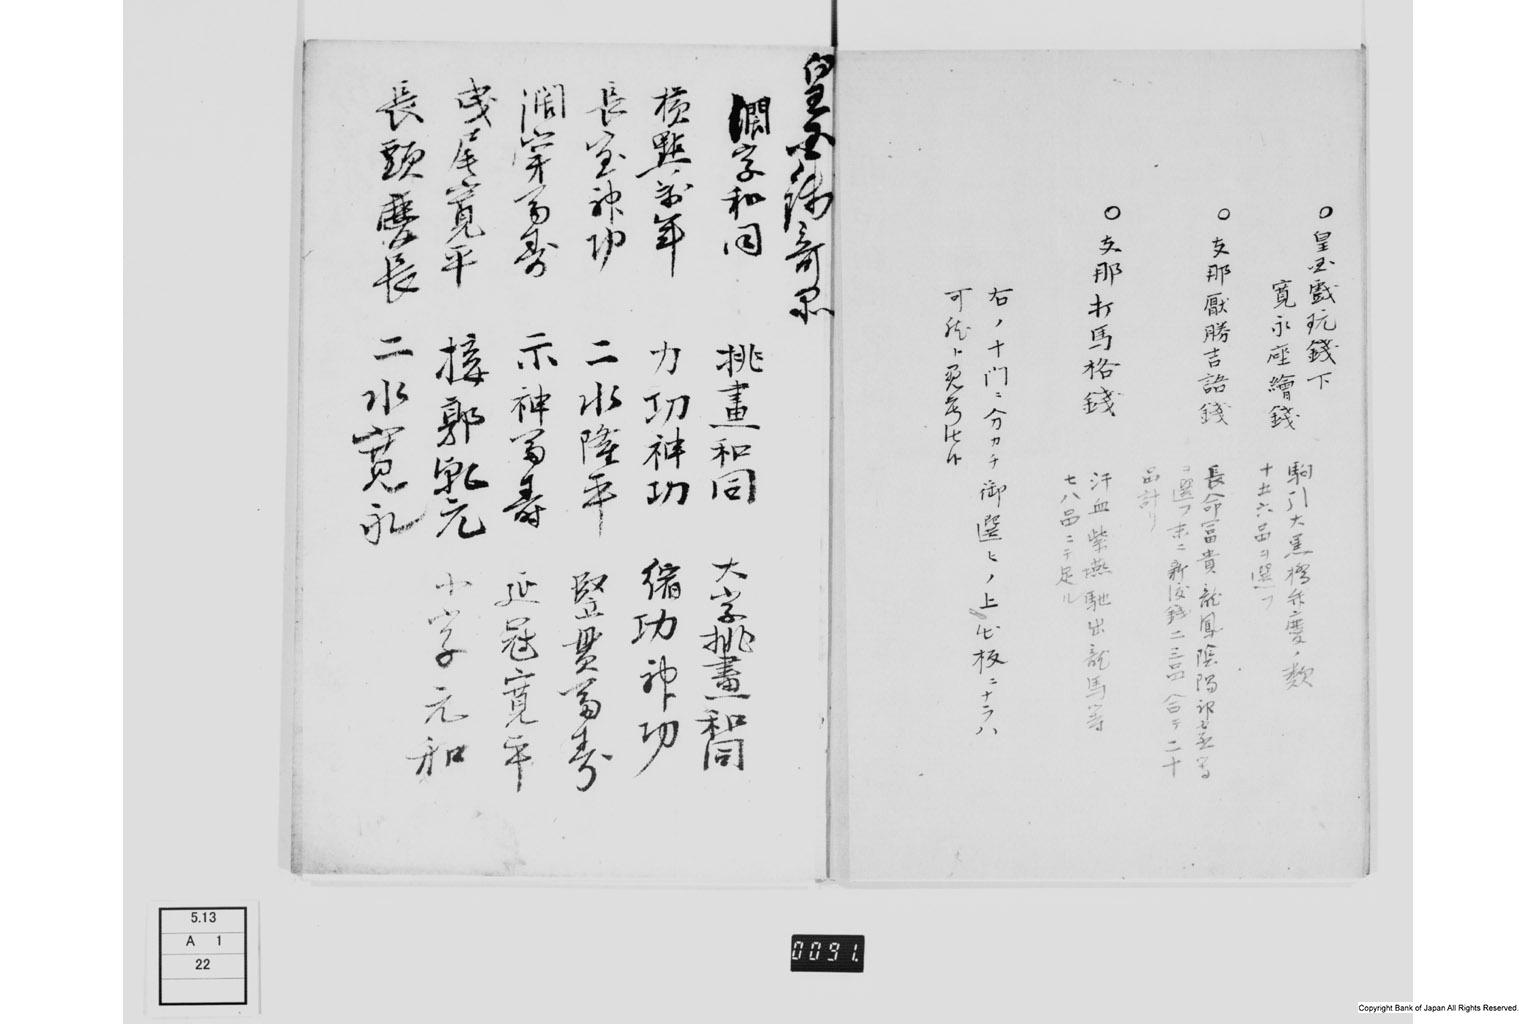 ○皇国戯玩錢下
寛永座繪錢
駒引大黒
十五六品ヲ選フ
○支那厭勝吉語錢
長命冨貴龍鳳陰陽
ヲ選フ末ニ新渡錢二三品合テ二十
品計リ
○支那打馬格錢
汗血紫燕馳出龍馬等
七八品ニテ足ル
右ノ十門ニ分カチ御選ヒノ上出板ニナラハ
皇国錢奇品
濶字和同
挑畫和同
大字挑畫和同
横點萬年
力功神功
縮功神功
長宝神功
二水隆平
竪貫冨壽
濶穿冨壽
示神冨壽
延冠寛平
曳尾寛平
接郭乾元
小字元和
長頸慶長
二水寛永
5.13
A 1
22
0091.
Copyright Bank of Japan All Rights Reserved.